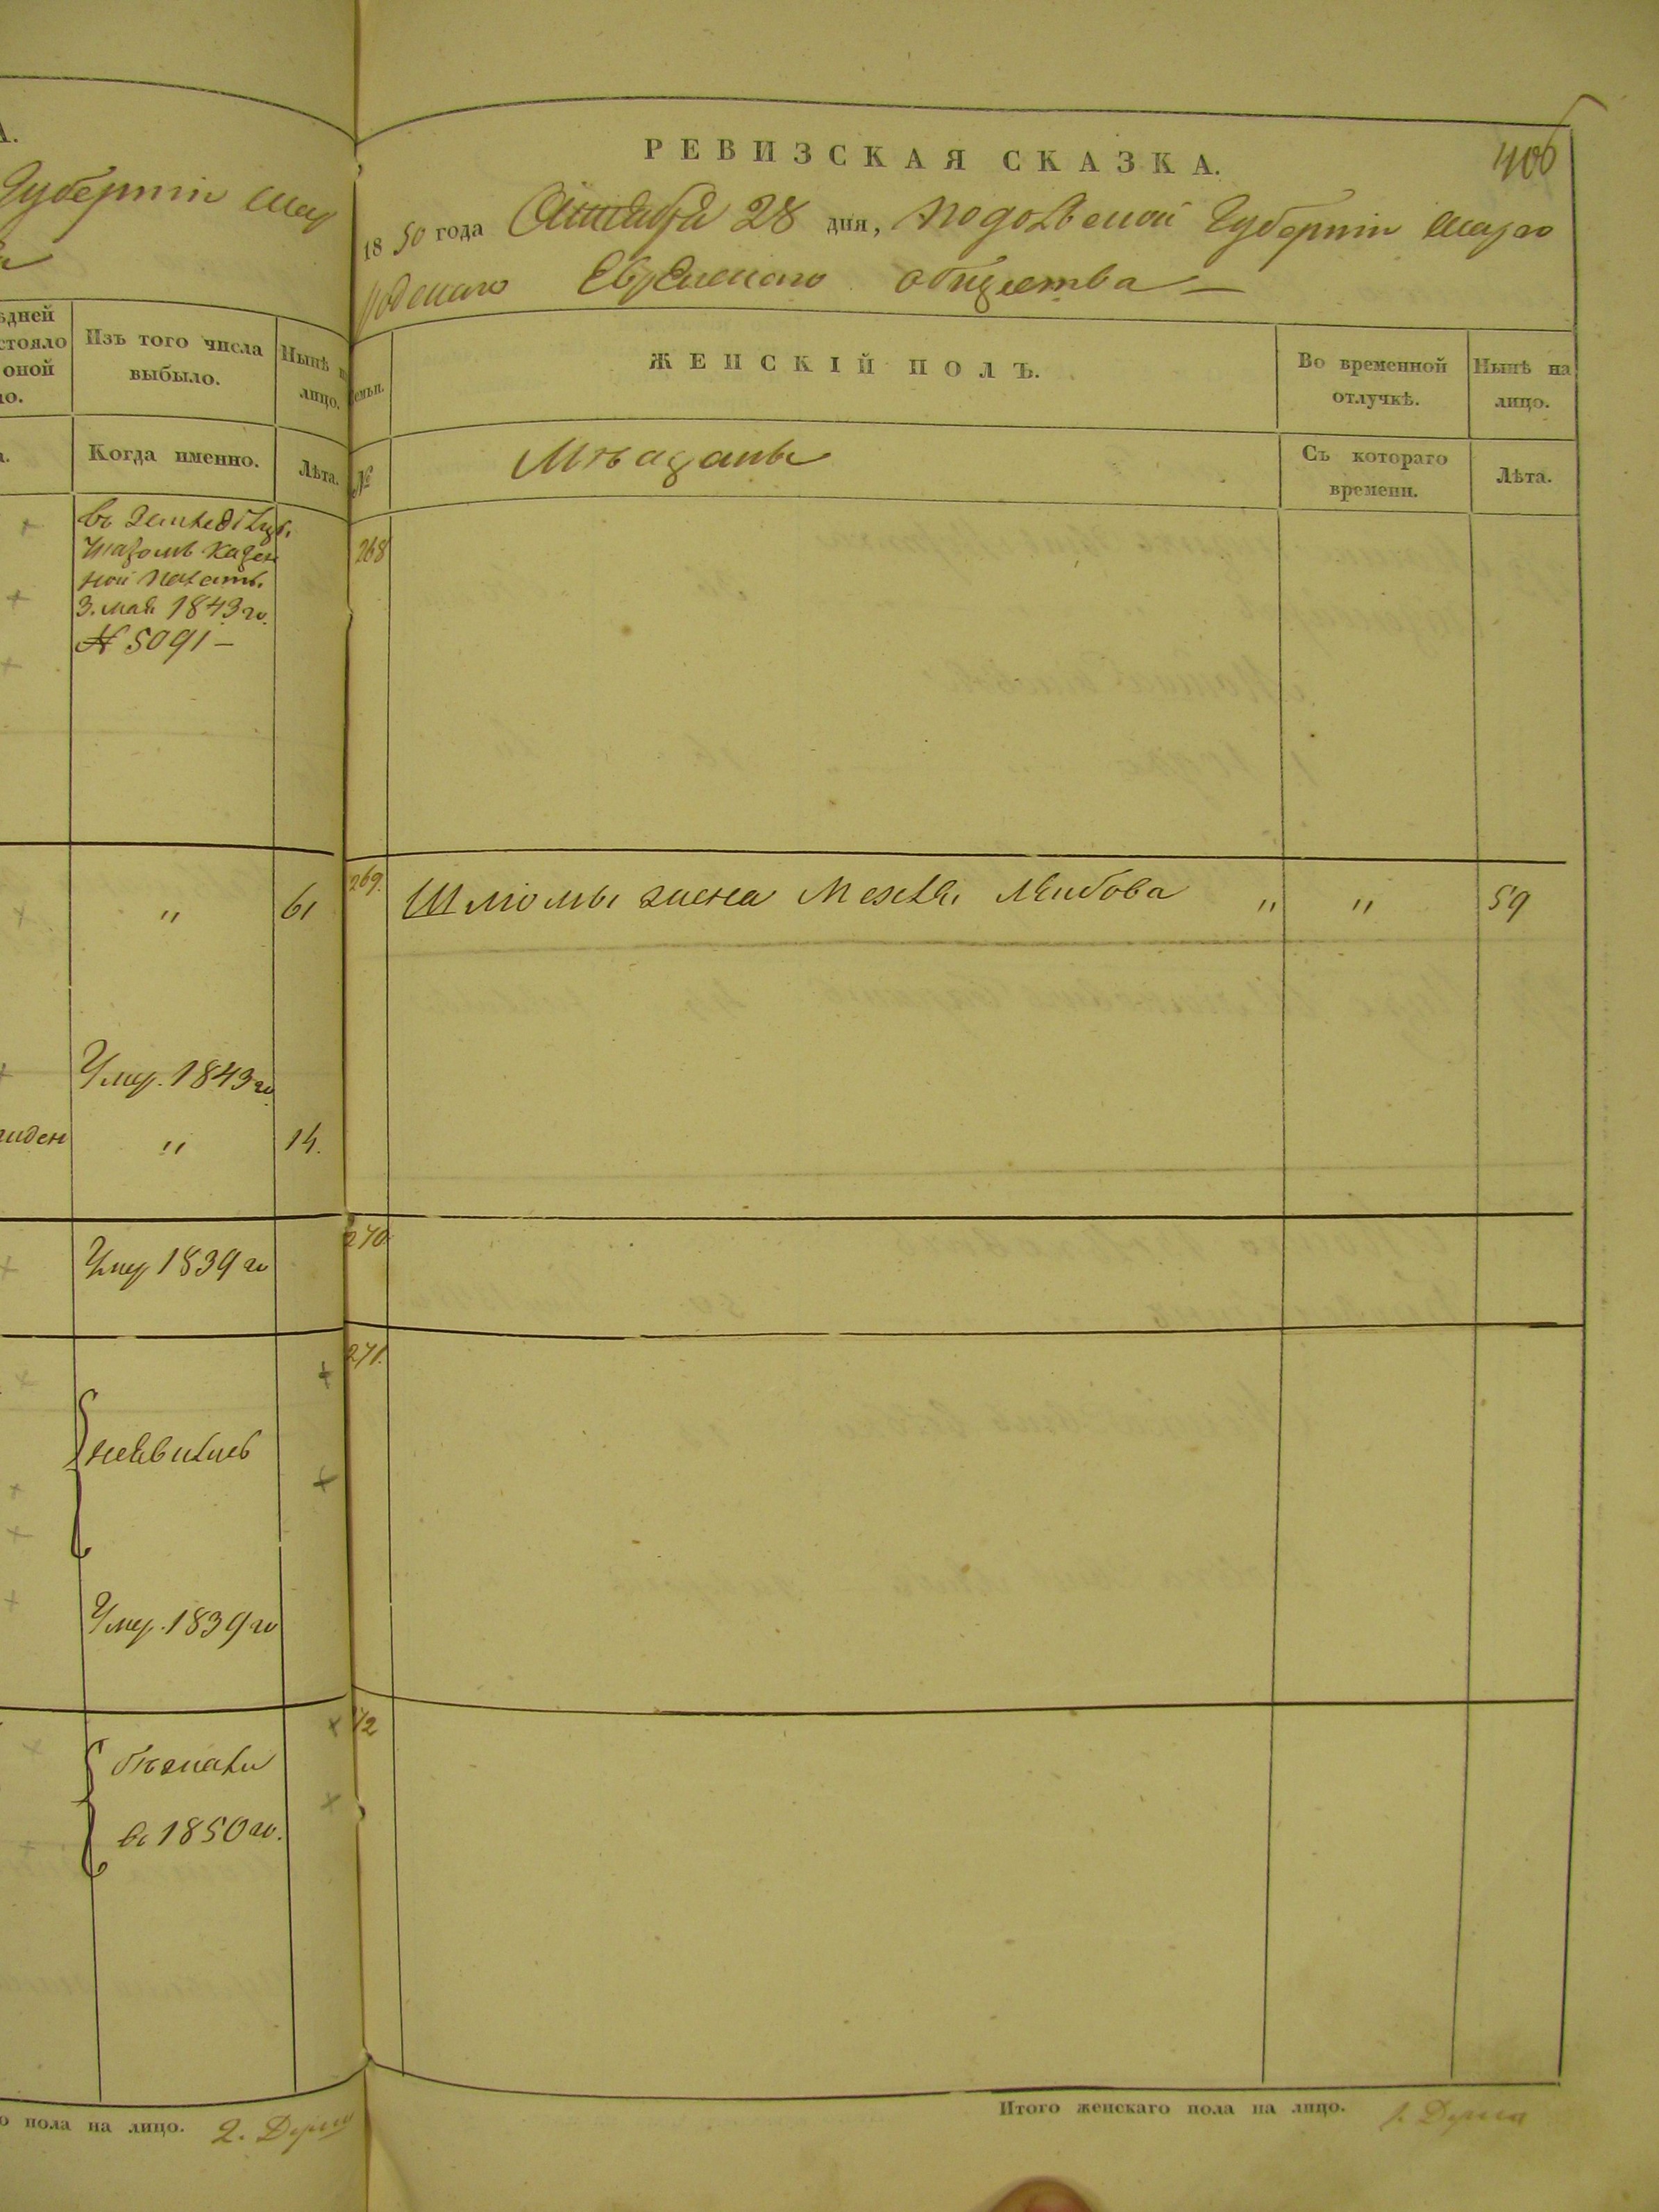 А.
Губерніи Шар
ѣдней
стояло
оной
ло.
Изъ того числа
выбыло.
Нынѣ н
лицо.
Когда именно.
Лѣта.
Казен
ной Палаты
3. мая 1843 го.
№ 5091 —
" 61
Умер. 1843 го
" 14.
Умер 1839 го
неявились
Умер. 1839 го
бежали
въ 1850 го.
о пола на лицо. 2. Души
РЕВИЗСКАЯ СКАЗКА.
406
1850 года 28 дня, Подольской Губерніи Шарго
родскаго Еврейскаго общества —
семьи.
ЖЕНСКІЙ ПОЛЪ.
Во временной
отлучкѣ.
Нынѣ на
лицо.
№
Мѣщаны
Съ котораго
времени.
Лѣта.
268
269. Шлiомы жена Лейбова " " 59
270
271.
72
Итого женскаго пола на лицо. 1. Душа